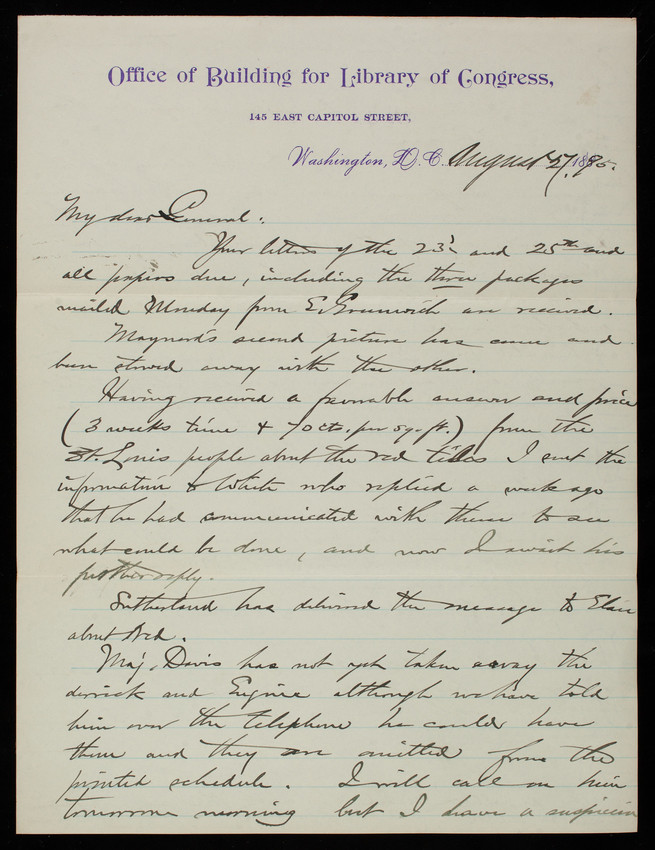 Office of Building for Library of Congress,
145 EAST CAPITOL STREET,
Washington, D. C. August 27, 1895.
My dear General:
Your letters of the 23d and 25th and
all papers due, including the three packages
mailed Monday from E. Greenwich are received.
Maynard's second picture has come and
been stowed away with the other.
Having received a favorable answer and price
(3 weeks time & 70 cts. per sq. ft.) from the
St. Louis people about the red tiles I sent the
information to White who replied a week ago
that he had communicated with them to see
what could be done, and now I await his
further reply.
Sutherland has delivered the message to
about
Maj. Davis has not yet taken away the
derrick and Engine although we have told
him over the telephone he could have
them and they are omitted from the
printed schedule. I will call on him
tomorrow morning but I have a suspicion